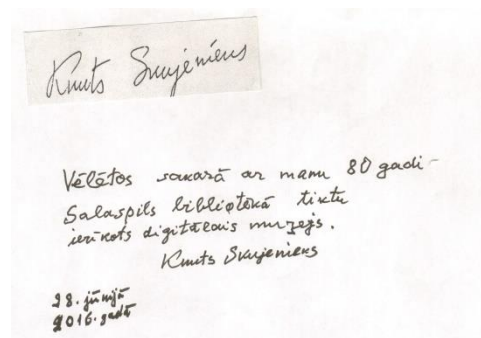 Knuts Skujenieks
Vēlētos sakarā ar manu 80 gadi-
Salaspils bibliotekā tiktu
ierīkots digitālais muzejs.
Knuts Skujenieks
28. jūnijā
2016. gadā